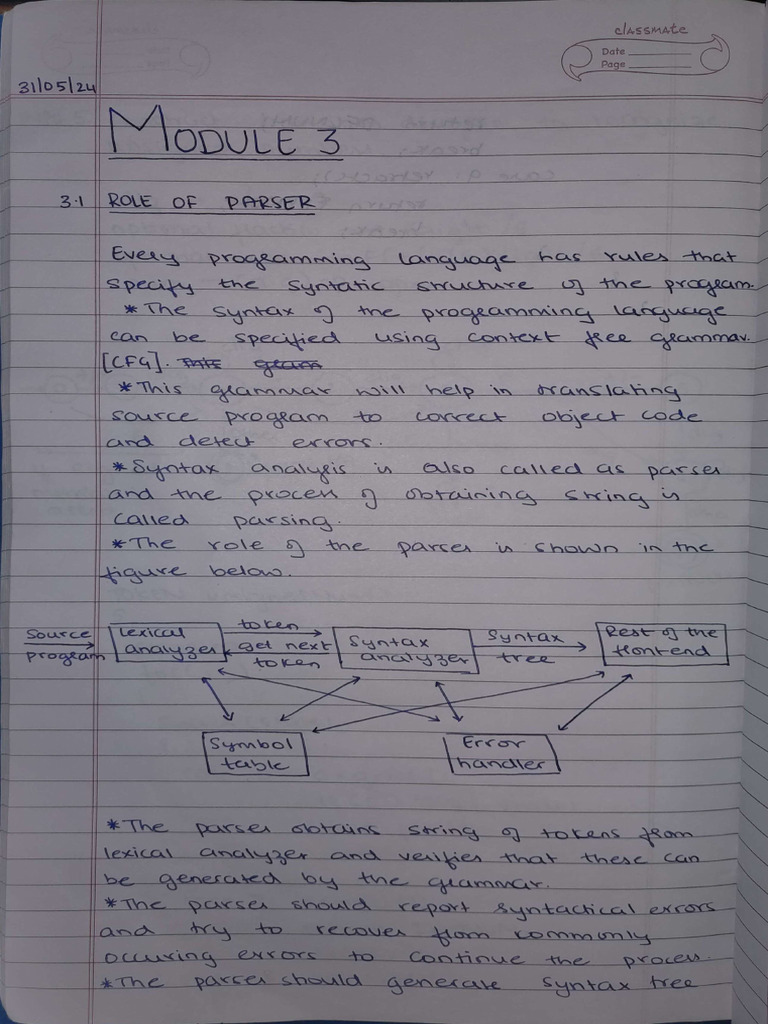 classmate
Date
Page
31/05/24
MODULE 3
3.1 ROLE OF PARSER
Every programming language has rules that
specify the syntatic structure of the program.
* The syntax of the programming language
can be specified using context free grammar.
[CFG]. This gram
* This grammar will help in translating
source program to correct object code
and detect errors.
* Syntax analysis is also called as parser
and the process of obtaining string is
called parsing.
* The role of the parser is shown in the
figure below.
source program
Lexical analyzer
token
get next token
Syntax analyzer
Syntax tree
Rest of the frontend
Symbol table
Error handler
* The parser obtains string of tokens from
lexical analyzer and verifies that these can
be generated by the grammar.
* The parser should report syntactical errors
and try to recover from commonly
occuring errors to continue the process.
* The parser should generate syntax tree